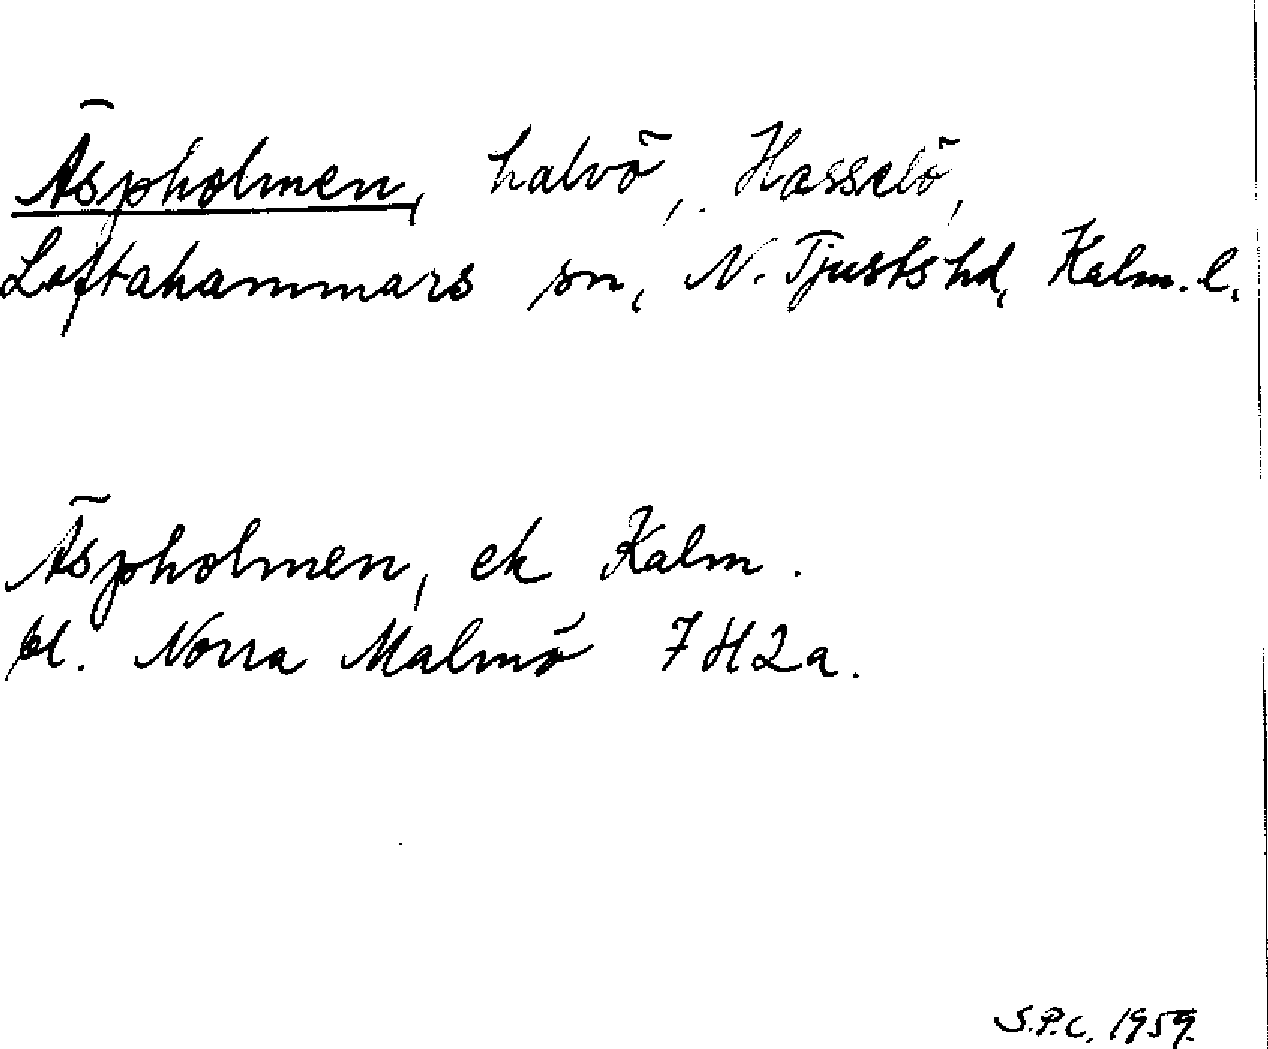 Äspholmen, halvö, Hasselö,
Loftahammars sn, N. Tjusts hd, Kalm. l.
Äspholmen, ek Kalm.
bl. Norra Malmö 7H2a.
S.P.C. 1959.